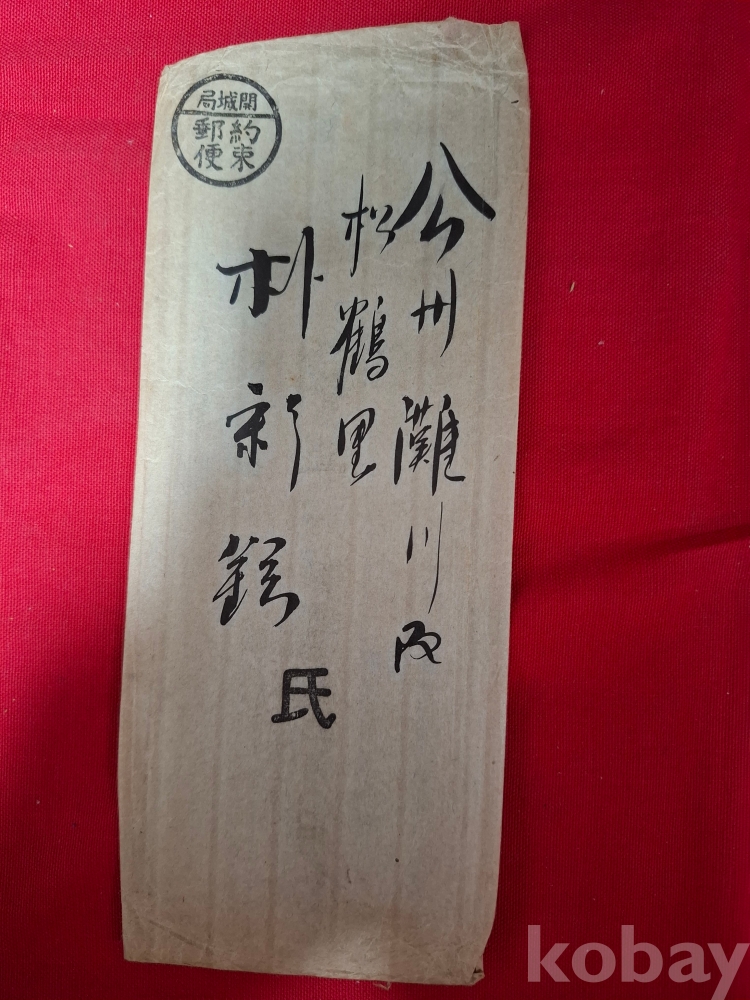 開城局
約束
郵便
公州灘川面
松鶴里
朴新鎔
氏
kobay